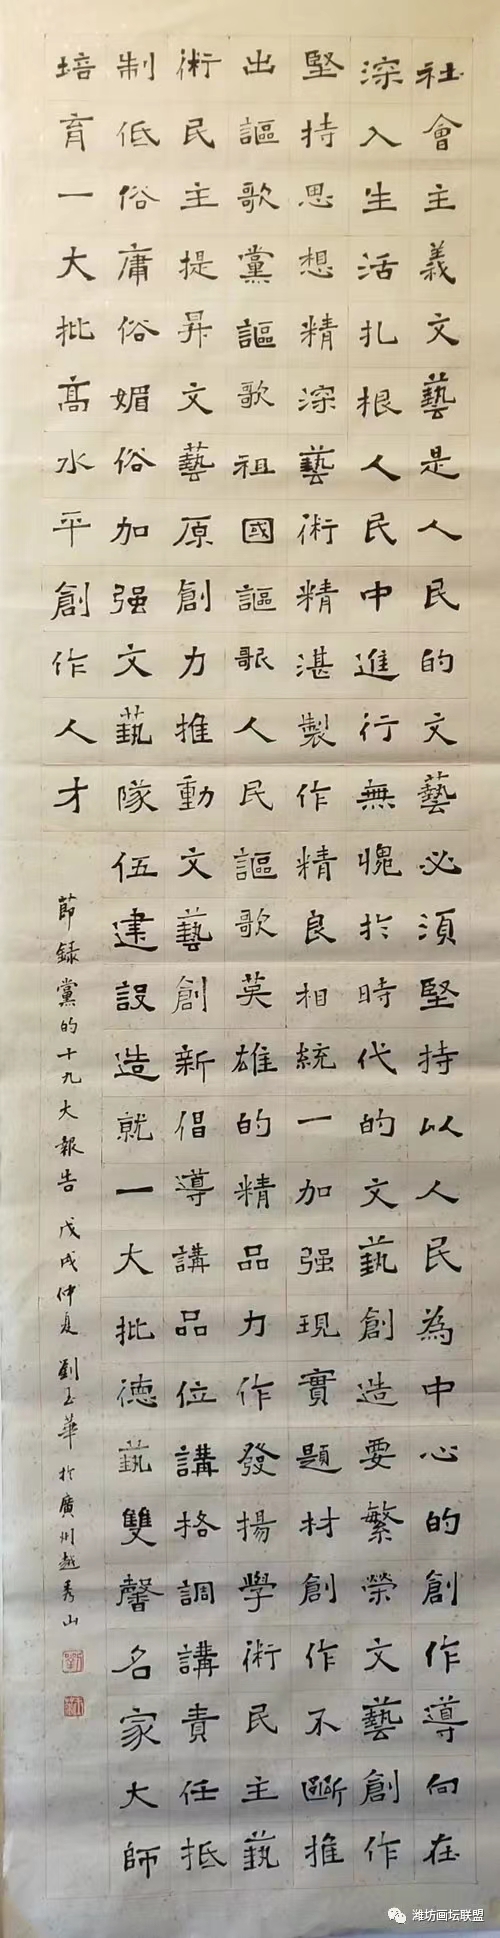 社會主義文藝是人民的文藝必須堅持以人民為中心的創作導向在
深入生活扎根人民中進行無愧於時代的文藝創造要繁榮文藝創作
堅持思想精深藝術精湛製作精良相統一加强現實題材創作不斷推
出謳歌黨謳歌祖國謳歌人民謳歌英雄的精品力作發揚學術民主藝
術民主提昇文藝原創力推動文藝創新倡導講品位講格調講責任抵
制低俗庸俗媚俗加强文藝隊伍建設造就一大批德藝雙馨名家大師
培育一大批髙水平創作人才
節録黨的十九大報告 戊戌仲夏 劉玉華於廣州越秀山
潍坊画坛联盟